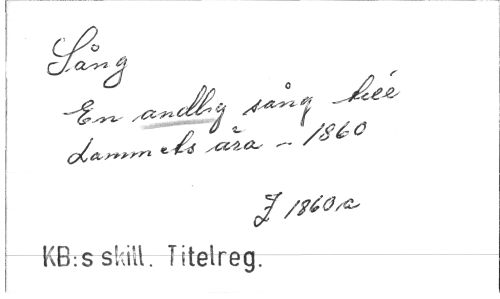 Sång
En andlig sång till
Lammets ära - 1860
Z 1860 a
KB:s skill. Titelreg.